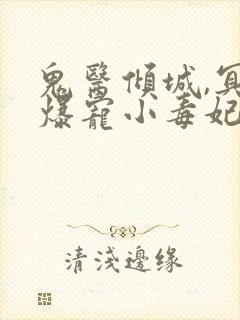 鬼醫傾城,冥
爆寵小毒妃
清淺邊缘